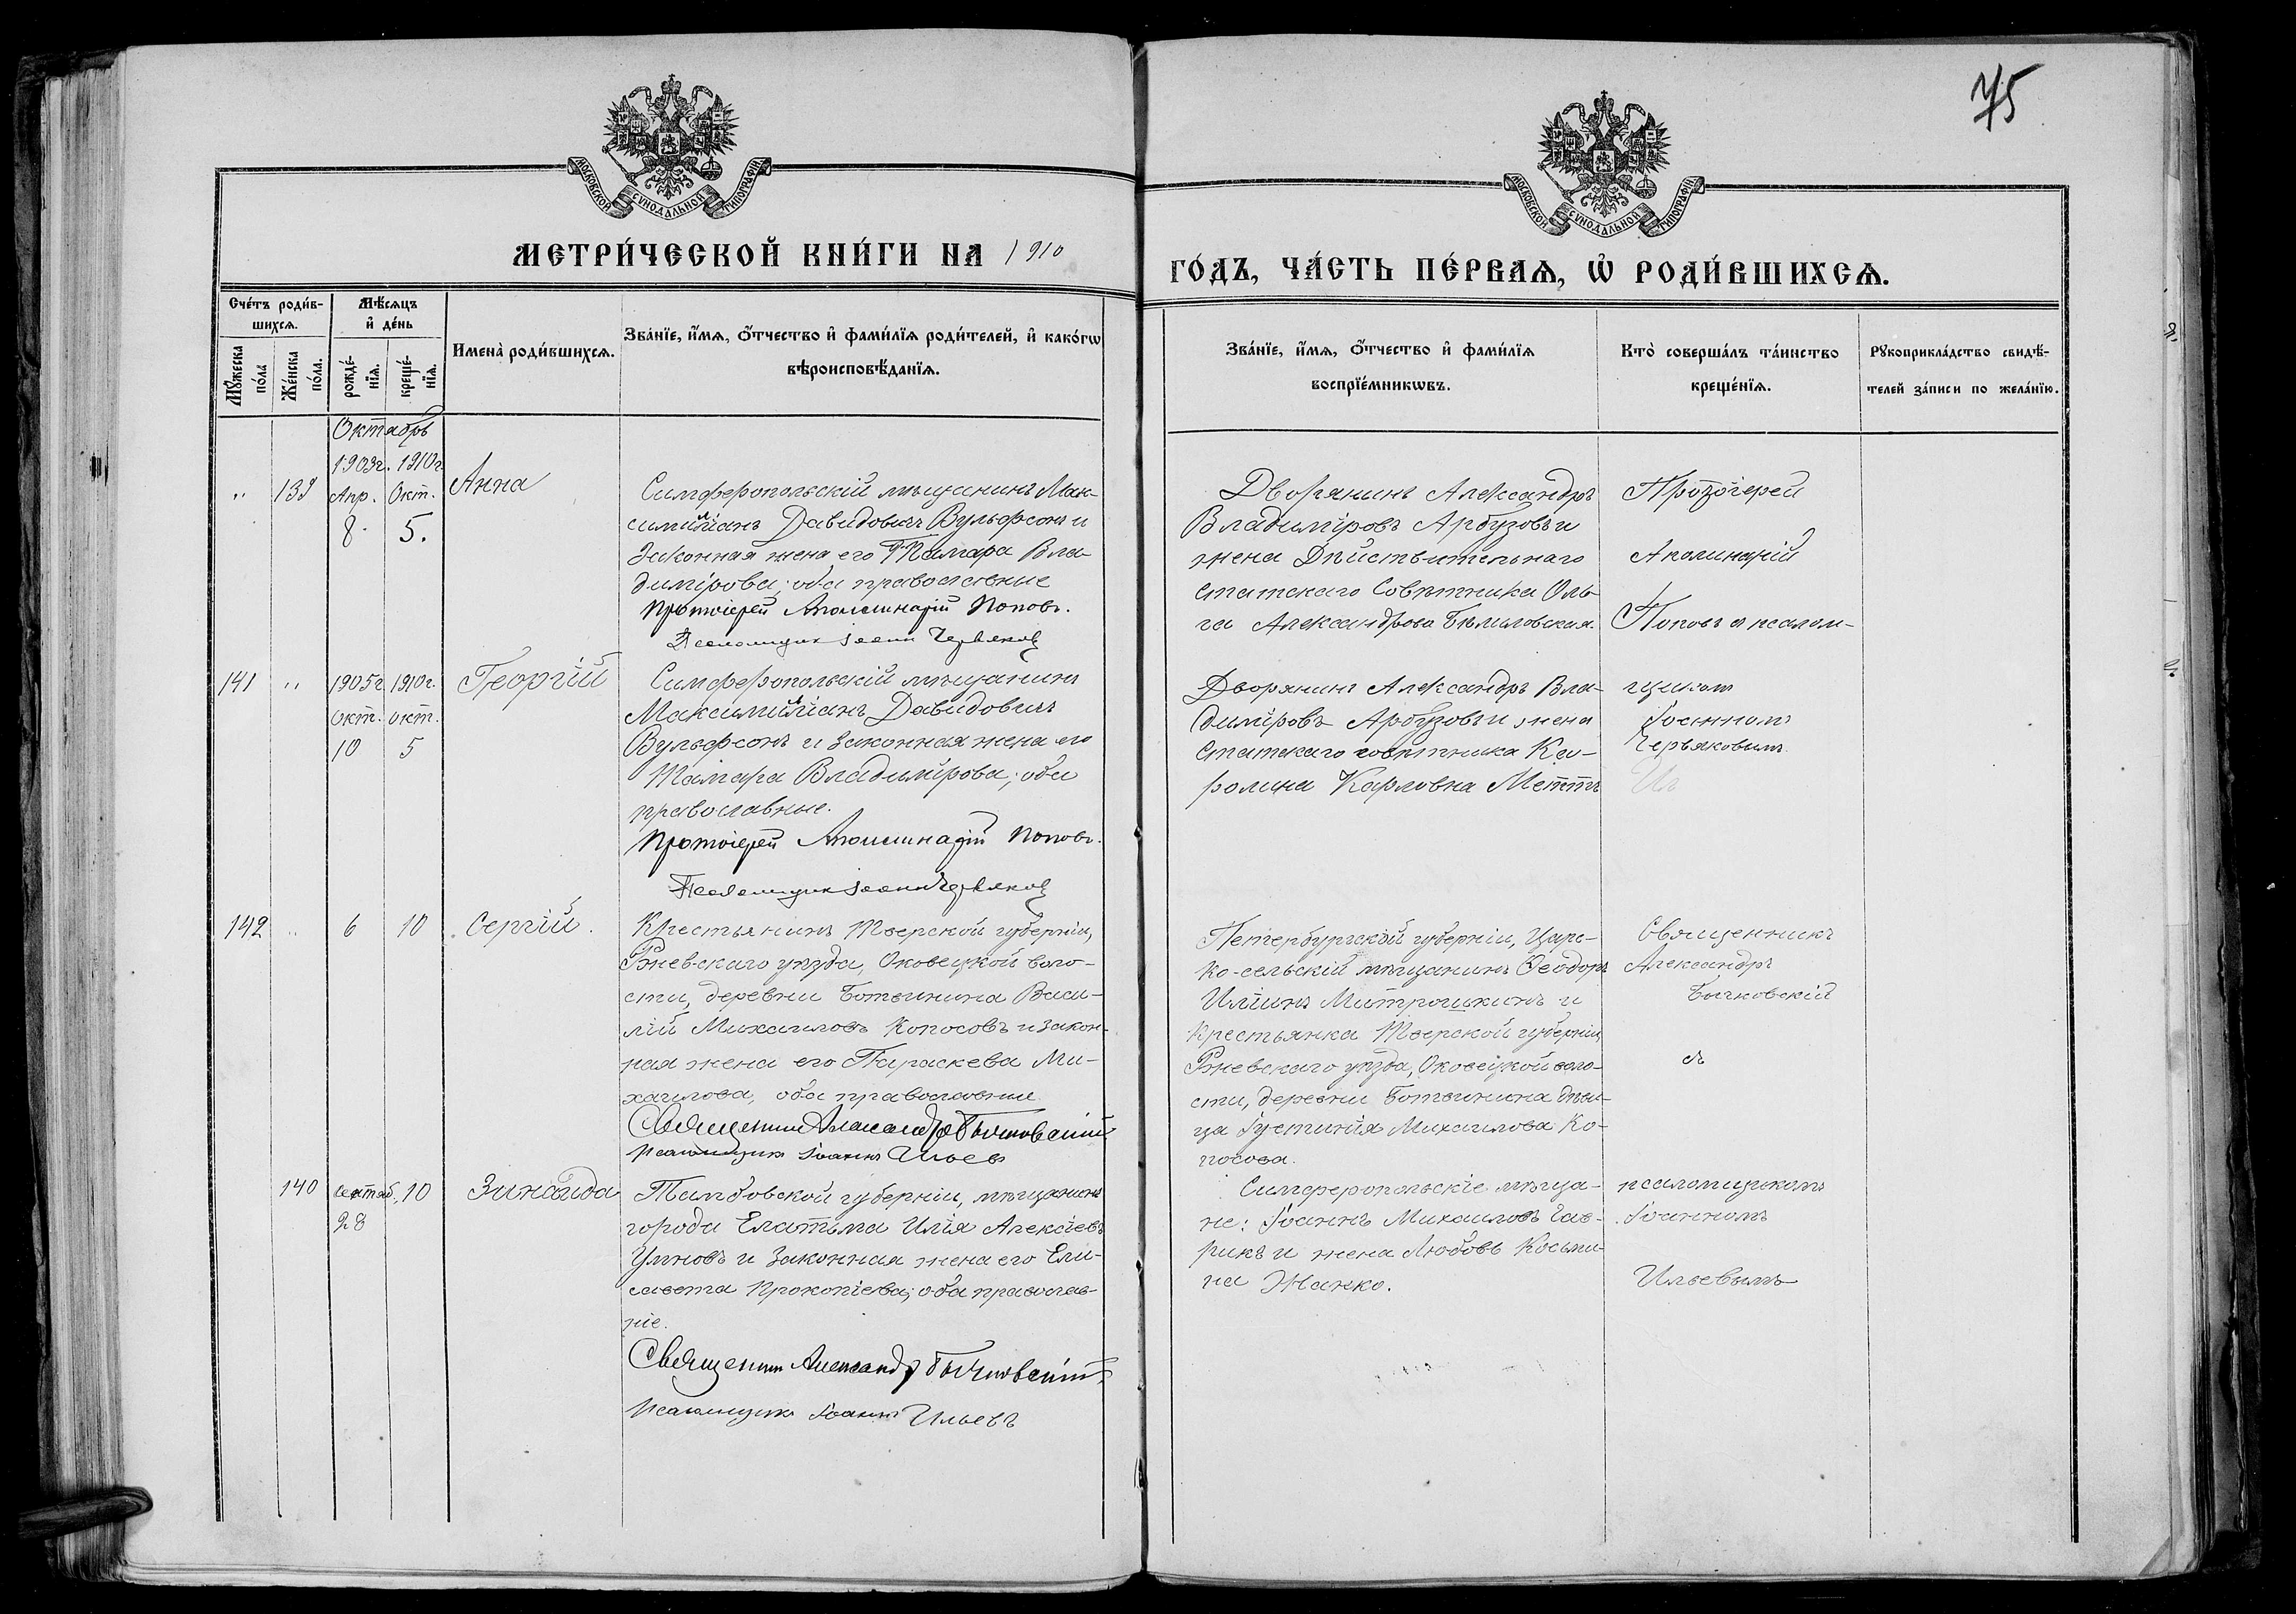 75
МОСКОВСКОЙ СѴНОДАЛЬНОЙ ТИПОГРАФІИ
МОСКОВСКОЙ СѴНОДАЛЬНОЙ ТИПОГРАФІИ
МЕТРИ́ЧЕСКОЙ КНИ́ГИ НА 1910
ГО́ДЪ, ЧА́СТЬ ПЕ́РВАѦ, Ѽ РОДИ́ВШИХСѦ.
Сче́тъ роди́в-
шихсѧ.
Мꙋ́жеска
по́ла
Же́нска
по́ла.
Мѣ́сѧцъ
и҆ де́нь
рожде́-
нїѧ.
креще́-
нїѧ.
Имена̀ роди́вшихсѧ.
Зва́нїе, и҆́мѧ, ѻ҆́тчество и҆ фами́лїѧ роди́телей, и҆ како́гѡ
вѣроисповѣ́данїѧ.
Зва́нїе, и҆́мѧ, ѻ҆́тчество и҆ фами́лїѧ
воспрїе́мникѡвъ.
Кто̀ соверша́лъ та́инство
креще́нїѧ.
Рꙋкоприкла́дство свидѣ́-
телей за́писи по жела́нїю.
Октябрь
1903г. 1910г.
" 139 Апр. Окт.
8. 5.
Анна
Симферопольскій мѣщанинъ Мак-
симиліанъ Давидовичъ Вульфсонъ и
законная жена его Тамара Вла-
димірова; оба православные
Протоіерей Аполлинарій Поповъ.
Псаломщик Іоанн Червяков
Дворянинъ Александръ
Владиміровъ Арбузовъ и
жена Дѣйствительнаго
Статскаго Совѣтника Оль-
га Александрова Бѣмиловская.
Протоіерей
Аполинарій
Поповъ с псалом-
141 " 1905г. 1910г.
окт. окт.
10 5
Георгій
Симферопольскій мѣщанинъ
Максимиліанъ Давидовичъ
Вульфсонъ и законная жена его
Тамара Владимірова; оба
православные.
Протоіерей Аполлинарій Поповъ.
Псаломщик Іоанн Червяков
Дворянинъ Александръ Вла-
диміровъ Арбузовъ и жена
Статскаго совѣтника Ка-
ролина Карловна Меттъ
щиком
Іоанномъ
Червяковымъ
142 " 6 10 Сергій.
Крестьянинъ Тверской губерніи,
Ржевскаго уѣзда, Оковецкой воло-
сти, деревни Ботвинина Васи-
лій Михаиловъ Копосовъ и закон-
ная жена его Параскева Ми-
хаилова, оба православные
Священник Александр Бычковскій
Псаломщикъ Іоаннъ Ильевъ
Петербургской губерніи, Царс-
ко-сельскій мѣщанинъ Ѳеодоръ
Иліинъ Митрошкинъ и
крестьянка Тверской губерніи,
Ржевскаго уѣзда, Оковецкой воло-
сти, деревни Ботвинина дѣви-
ца Іустинія Михаилова Ко-
посова.
Священникъ
Александръ
Бычковскій
съ
140 сентяб. 10 Зинаида
28
Тамбовской губерніи, мѣщанинъ
города Елатьма Илія Алексіевъ
Умновъ и законная жена его Ели-
савета Прокопіева; оба православ-
ніе.
Священник Александр Бычковскій
Псаломщикъ Іоаннъ Ильевъ
Симферопольскіе мѣща-
не: Іоаннъ Михаиловъ Гав-
рикъ и жена Любовь Косьми-
на Жанко.
псаломщикомъ
Іоанномъ
Ильевымъ